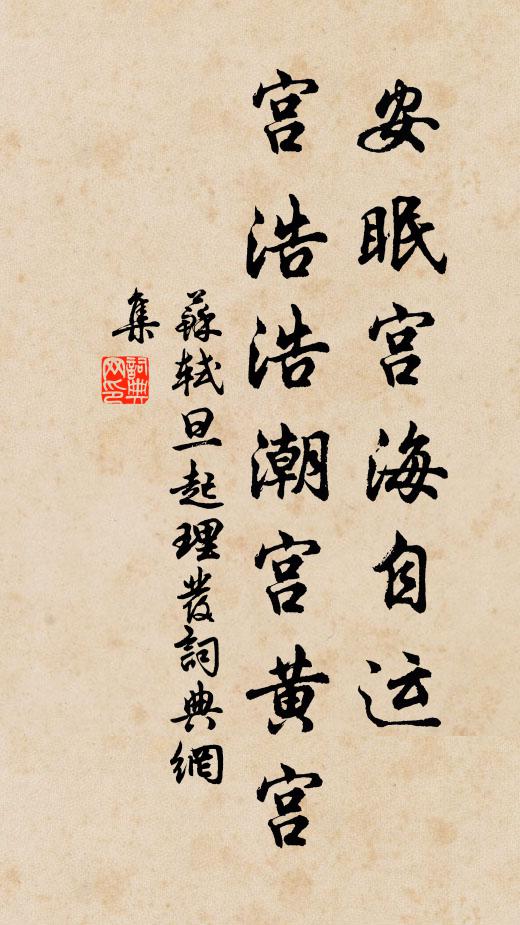 安眠宫海自运
宫浩浩潮宫黄宫
蘇軾旦起理發詞典網
集
詞典
网印